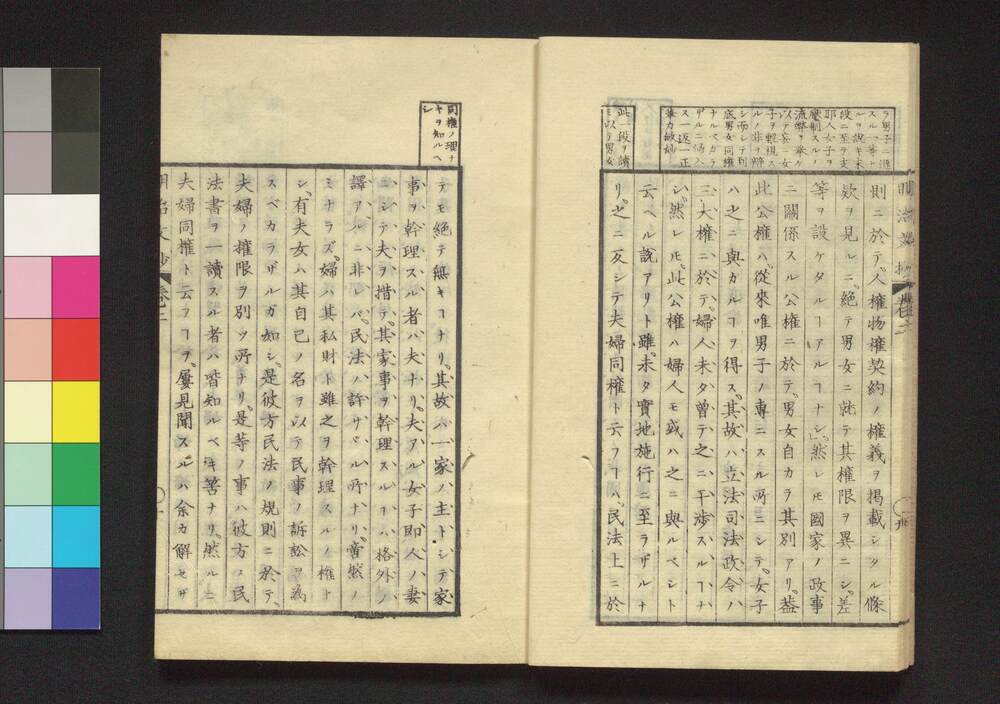 ラ男子ニ混
スル一等ト
ルヲ說キ末
段ニ至テ支
那人女子ヲ
壓制スルノ
流弊ヲ承ケ
以テ妄リニ女
子ヲ輕視ス
ルノ非ヲ辯
シ而シテ到
底男女同權
ナルベカラ
ザルニ歸入
ス一返一正
筆力敏妙
則ニ於テ人權物權契約ノ權義ヲ掲載シタル條
欵ヲ見ルニ絶テ男女ニ就テ其權限ヲ異ニシ差
等ヲ設ケタルヿアルヿナシ」然レ𪜈國家ノ政事
ニ關係スル公權ニ於テ男女自カラ其別アリ蓋
此公權ハ從來唯男子ノ專ニスル所ニシテ女子
ハ之ニ與カルヿヲ得ス其故ハ立法司法政令ノ
三大權ニ於テ婦人未タ曾テ之ニ干渉スルヿナ
シ然レ𪜈此公權ハ婦人モ或ハ之ニ與ルベシト
云ヘル說アリト雖未タ實地施行ニ至ラザルナ
リ之ニ反シテ夫婦同權ト云フヿハ民法上ニ於
此一段ヲ讀
モ以テ男女
同權ノ理ナ
キヲ知ルヘ
シ
テモ絶テ無キヿナリ其故ハ一家ノ主トシテ家
事ヲ幹理スル者ハ夫ナリ夫アル女子即人ノ妻
ニシテ夫ヲ措テ其家事ヲ幹理スルヿハ格外ノ
譯アルニ非レバ民法ノ許サヾル所ナリ啻然ノ
ミナラズ婦ハ其私財ト雖之ヲ幹理スルノ權ナ
シ有夫女ハ其自己ノ名ヲ以テ民事ノ訴訟ヲ爲
スベカラザルガ如シ是彼方民法ノ規則ニ於テ
夫婦ノ權限ヲ別ツ所ナリ是等ノ事ハ彼方ノ民
法書ヲ一讀スル者ハ皆知ルベキ筈ナリ然ルニ
夫婦同權ト云フヿヲ屢見聞スルハ余カ解セザ